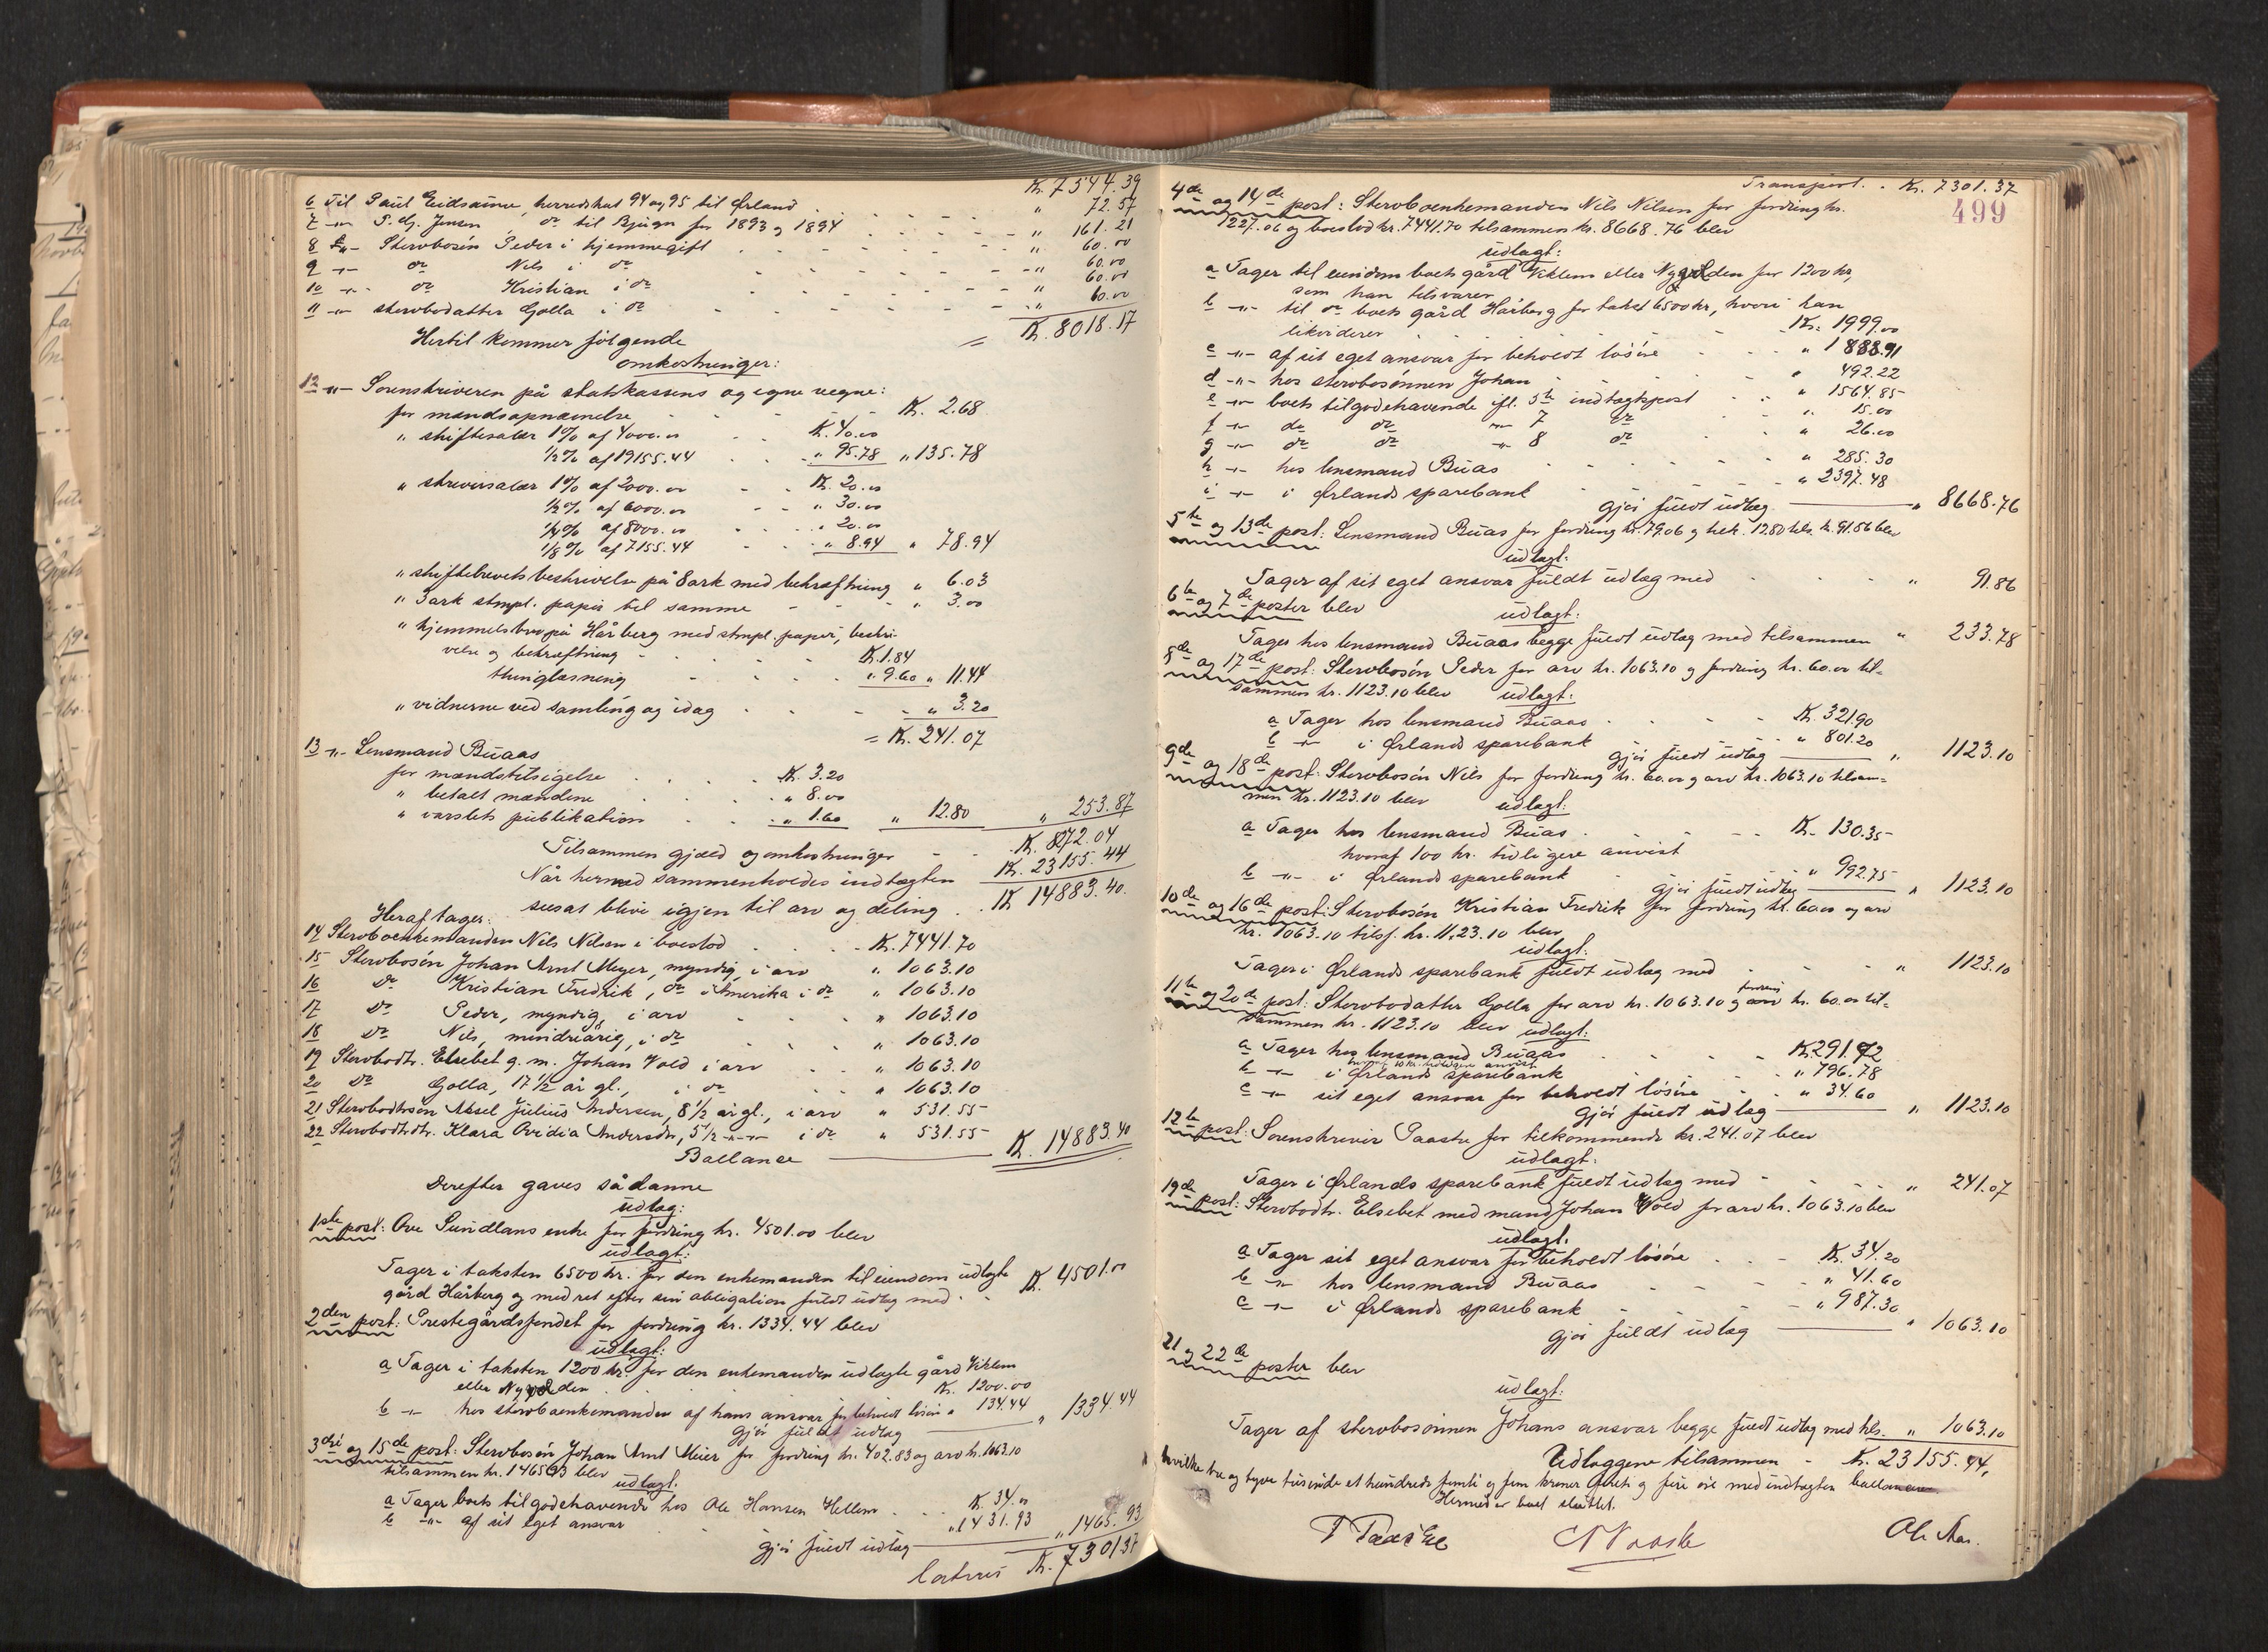 Kr. 7544.39
6 Til Paul Eidsaune, herredskat 94 og 95 til Ørland " 72.57
7 -"- S. Jensen, do til Bjugn for 1893 og 1894 " 161.21
8 -"- Stervbosøn Peder i hjemmegift " 60.00
9 -"- do Nils i do " 60.00
10 -"- do Kristian i do " 60.00
11 -"- stervbodatter Golla i do " 60.00
Hertil kommer følgende = Kr. 8018.17
omkostninger:
12 -"- Sorenskriveren på statskassens og egne vegne:
for mandsopnævnelse Kr. 2.68
" skiftesalær 1% af 4000.00 Kr. 40.00
1/2% af 19155.44 " 95.78 " 135.78
" skriversalær 1% af 2000.00 Kr. 20.00
1/2% af 6000.00 " 30.00
1/4% af 8000.00 " 20.00
1/8% af 7155.44 " 8.94 " 78.94
" skiftebrevets beskrivelse på 8 ark med bekræftning " 6.03
" 3 ark stmpl. papir til samme " 3.00
" hjemmelsbrev på Hårberg med stmpl. papir, beskri-
velse og bekræftning Kr. 1.84
thinglæsning " 9.60 " 11.44
" vidnerne ved samling og idag " 3.20
= Kr. 241.07
13 -"- Lensmand Buaas
for mandstilsigelse Kr. 3.20
" betalt mændene " 8.00
" varslets publikation " 1.60 " 12.80 " 253.87
Tilsammen gjæld og omkostninger Kr. 8272.04
Når hermed sammenholdes indtægten Kr. 23155.44
sees at blive igjen til arv og deling Kr 14883.40
Heraf tager:
14 Stervboenkemanden Nils Nilsen i boeslod Kr. 7441.70
15 Stervbosøn Johan Arnt Meyer, myndig, i arv " 1063.10
16 Do Kristian Fredrik, do i Amerika i do " 1063.10
17 Do Peder, myndig, i arv " 1063.10
18 Do Nils, mindreårig, i do " 1063.10
19 Stervbodtr. Elsebet g. m. Johan Vold i arv " 1063.10
20 Do Golla, 17 1/2 år gl., i do " 1063.10
21 Stervbodtrsøn Aksel Julius Andersen, 8 1/2 år gl., i arv " 531.55
22 Stervbodtrdtr. Klara Ovidia Andersdtr, 5 1/2 -"- -"- i do " 531.55 Kr. 14883.40
Ballance
Derefter gaves sådanne
udlæg:
1ste post: Ove Sundlans enke for fordring kr. 4501.00 blev
udlagt:
Tager i taksten 6500 kr. for den enkemanden til eiendom udlagte
gård Hårberg og med ret efter sin obligation fuldt udlæg med Kr. 4501.00
2den post: Prestegårdsfondet for fordring kr. 1334.44 blev
udlagt:
a Tager i taksten 1200 kr. for den enkemanden udlagte gård Viklem
eller Nygården Kr. 1200.00
b -"- hos stervboenkemanden af hans ansvar for beholdt løsøre " 134.44 " 1334.44
gjør fuldt udlæg
3die og 15de post: Stervbosøn Johan Arnt Meier for fordring kr. 402.83 og arv kr. 1063.10
tilsammen kr. 1465.93 blev
udlagt:
a Tager boets tilgodehavende hos Ole Hansen Hellem Kr. 34.00
b -"- af sit eget ansvar " 1431.93 " 1465.93
gjør fuldt udlæg
Latus Kr. 7301.37
Transport. Kr. 7301.37
499
4de og 14de post: Stervboenkemanden Nils Nilsen for fordring kr.
1227.06 og boeslod kr. 7441.70 tilsammen kr. 8668.76 blev
udlagt:
a Tager til eiendom boets gård Viklem eller Nygården for 1200 kr,
som han tilsvarer
b -"- til do boets gård Hårberg for takst 6500 kr, hvori han
likviderer Kr. 1999.00
c -"- af sit eget ansvar for beholdt løsøre " 1888.91
d -"- hos stervbosønnen Johan " 492.22
e -"- boets tilgodehavende ifl. 5te indtægtspost " 1564.85
f -"- do do -"- 7 do " 15.00
g -"- do do -"- 8 do " 26.00
h -"- hos lensmand Buas " 285.30
i -"- i Ørlands sparebank " 2397.48
gjør fuldt udlæg " 8668.76
5te og 13de post: Lensmand Buas for fordring kr. 79.06 og bek. 12.80 tils. kr. 91.86 blev
udlagt:
Tager af sit eget ansvar fuldt udlæg med " 91.86
6te og 7de poster blev
udlagt:
Tager hos lensmand Buaas begge fuldt udlæg med tilsammen " 233.78
8de og 17de post: Stervbosøn Peder for arv kr. 1063.10 og fordring kr. 60.00 til-
sammen kr. 1123.10 blev udlagt:
a Tager hos lensmand Buaas Kr. 321.90
b -"- i Ørlands sparebank " 801.20
gjør fuldt udlæg " 1123.10
9de og 18de post: Stervbosøn Nils for fordring kr. 60.00 og arv kr. 1063.10 tilsam-
men kr. 1123.10 blev udlagt:
a Tager hos lensmand Buas Kr. 130.35
hvoraf 100 kr. tidligere anvist
b -"- i Ørlands sparebank " 992.75
gjør fuldt udlæg " 1123.10
10de og 16de post: Stervbosøn Kristian Fredrik for fordring kr. 60.00 og arv
kr. 1063.10 tils. kr. 1123.10 blev
udlagt:
Tager i Ørlands sparebank fuldt udlæg med " 1123.10
11te og 20de post: Stervbodatter Golla for arv kr. 1063.10 og arv fordring kr. 60.00 til-
sammen kr. 1123.10 blev udlagt:
a Tager hos lensmand Buaas Kr 291.72
hvoraf 10 kr. tidligere anvist
b -"- i Ørlands sparebank " 796.78
c -"- sit eget ansvar for beholdt løsøre " 34.60
gjør fuldt udlæg " 1123.10
12te post: Sorenskriver Paaske for tilkommende kr. 241.07 blev
udlagt:
Tager i Ørlands sparebank fuldt udlæg med " 241.07
19de post: Stervbodtr. Elsebet med mand Johan Vold for arv kr. 1063.10 blev
udlagt:
a Tager sit eget ansvar for beholdt løsøre Kr. 34.20
b -"- hos lensmand Buaas " 41.60
c -"- i Ørlands sparebank " 987.30
gjør fuldt udlæg " 1063.10
21 og 22de poster blev
udlagt:
Tager af stervbosønnen Johans ansvar begge fuldt udlæg med tils. " 1063.10
Udlæggene tilsammen Kr. 23155.44,
hvilke tre og tyve tusinde et hundrede femti og fem kroner firti og fire øre med indtægten ballancerer
Hermed er boet sluttet.
P Paaske
N Paaske
Ole Aas.